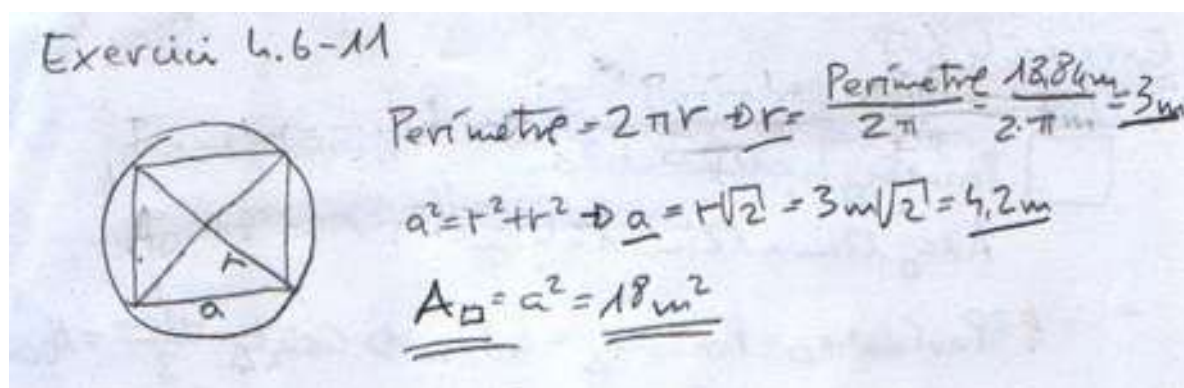 Exercici 4.6-11
Perímetre = 2πr ⇒ r = Perimetre / 2π = 18,84m / 2·π = 3m
a² = r² + r² ⇒ a = r√2 = 3m√2 = 4,2m
A□ = a² = 18m²
r
a